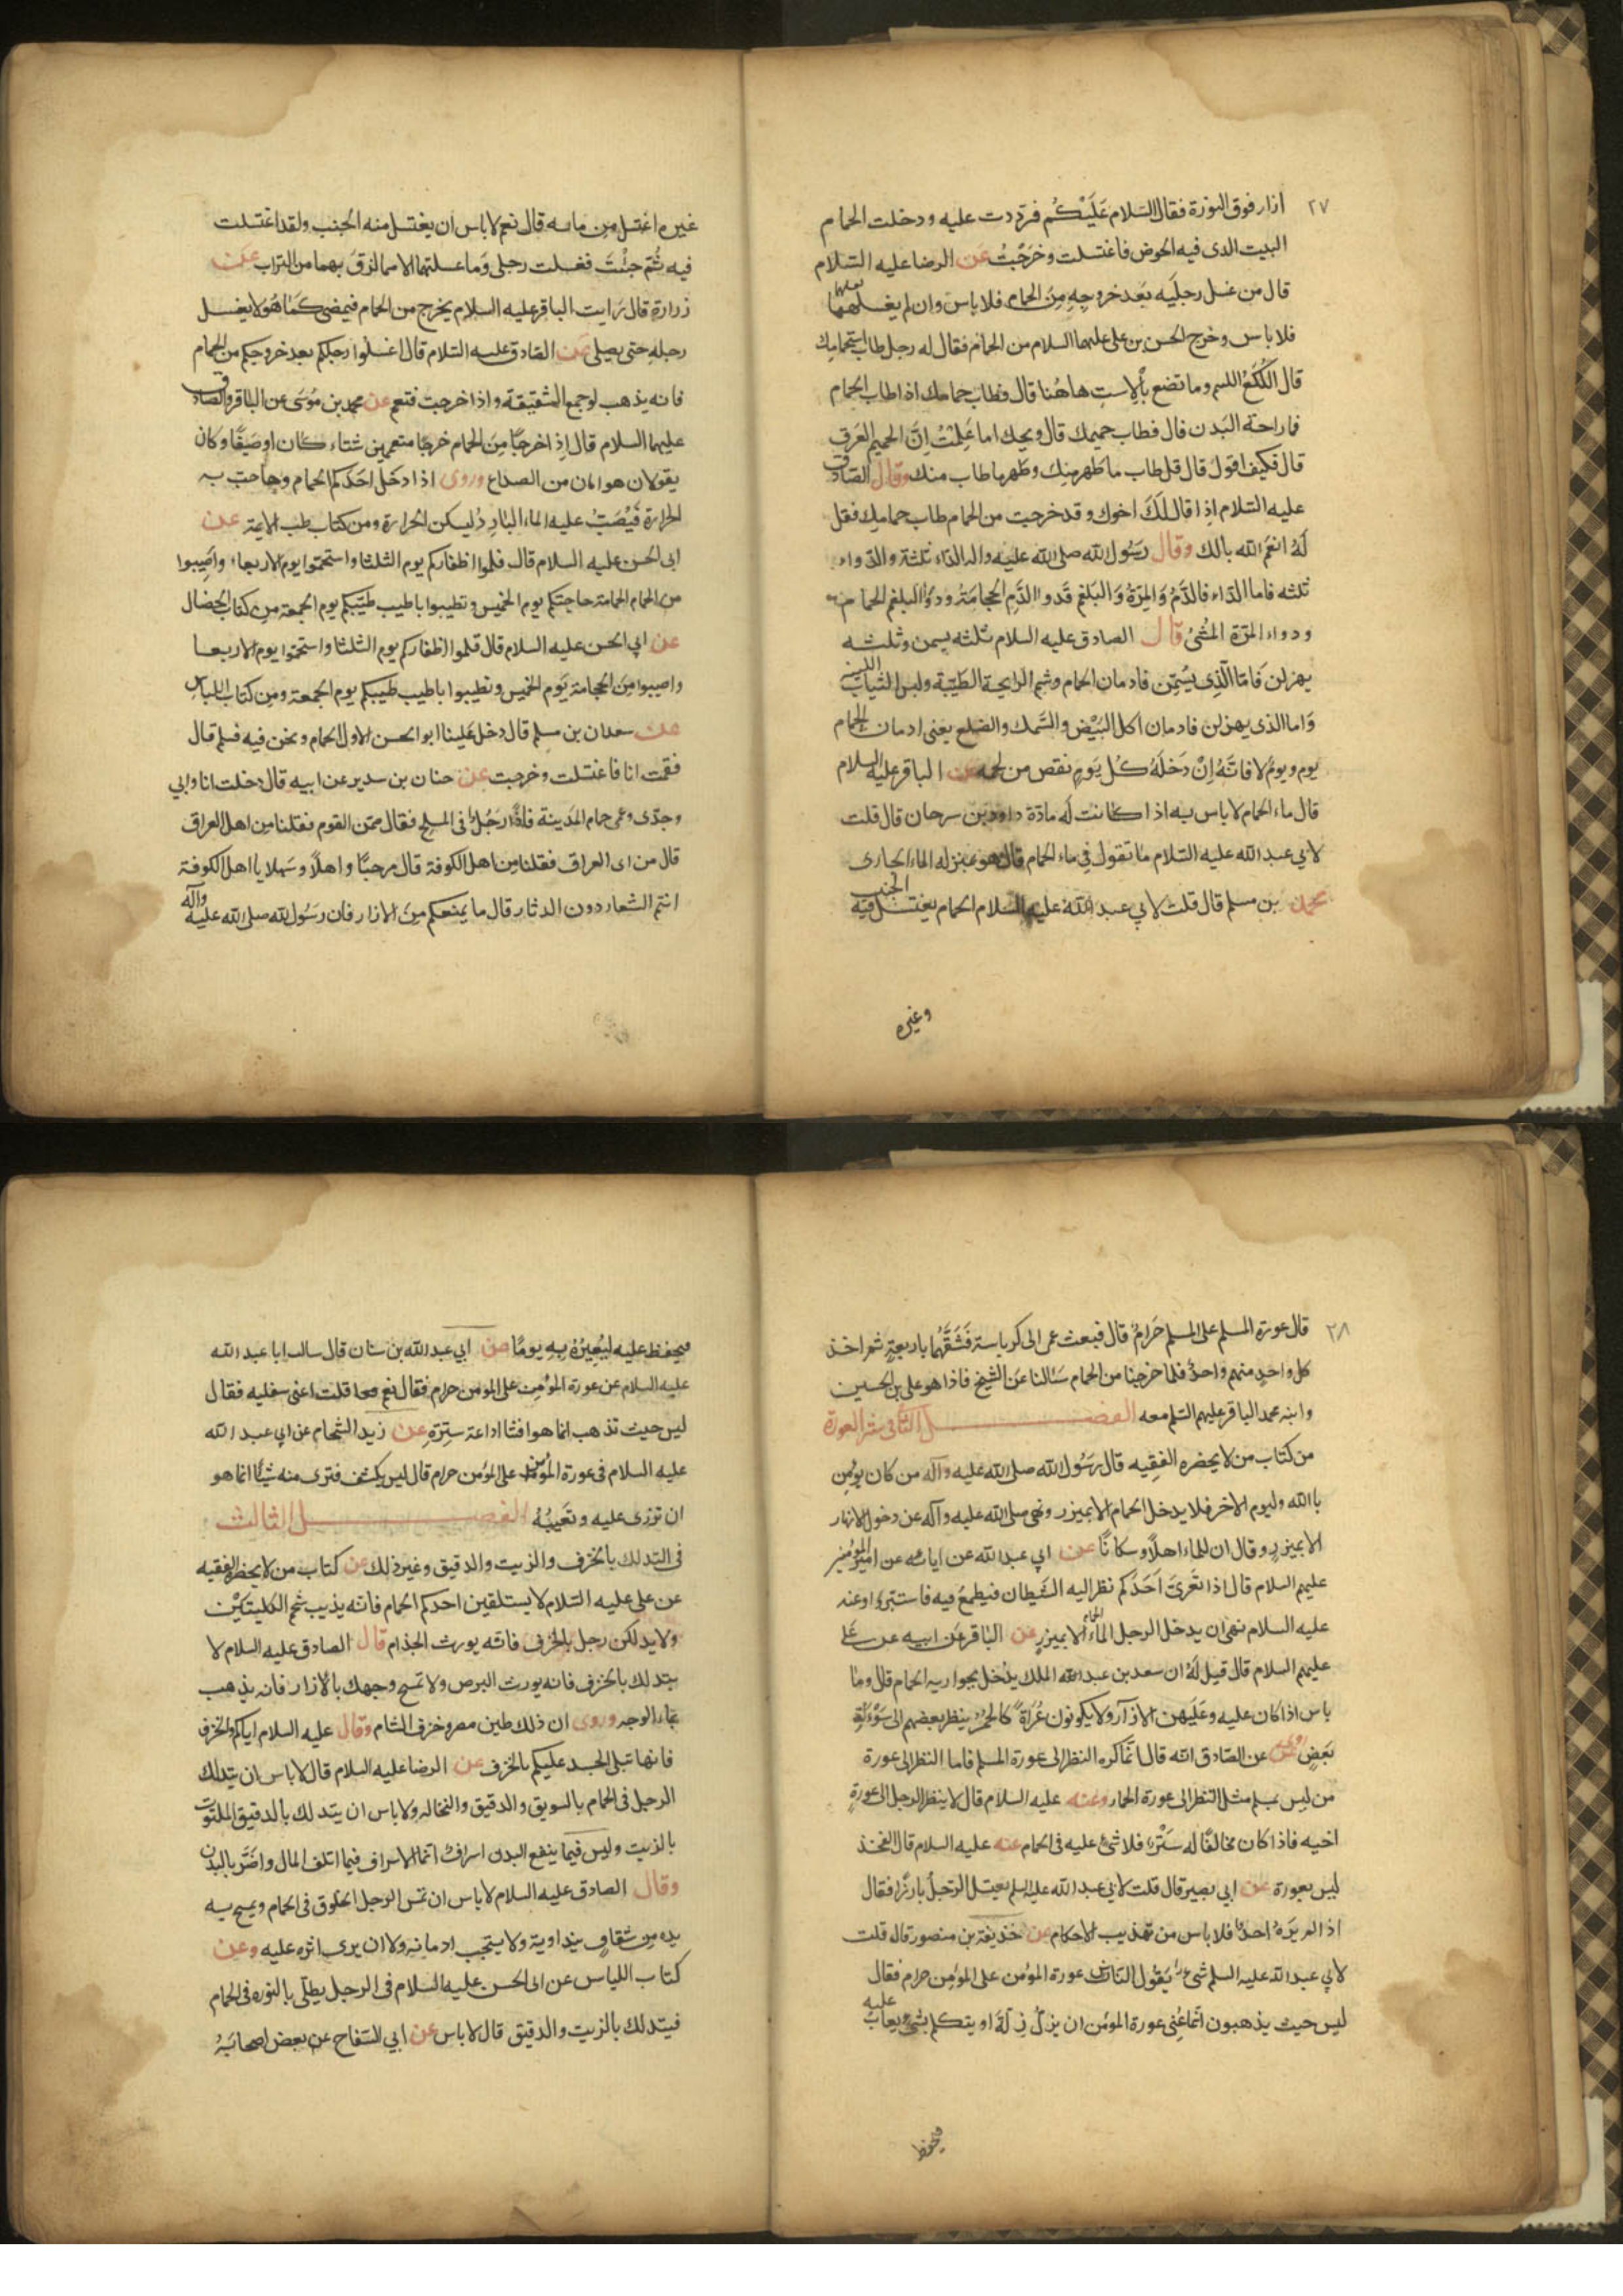 ٢٧
ازار فوق النورة فقال السلام عَلَيْكُم فرددت عليه ودخلت الحمام
البيت الذى فيه الحوض فاغتسلت وخرَجْتُ عن الرضا عليه السّلام
قال من غسل رجليه بَعد خروجِهِ مِنَ الحمام فلا باس وان لم يغسلهما
فلا باس وخرج الحسن بن على عليهما السلام من الحمام فقال له رجل طاب استحمامك
قال اللُكَعُ وما تضع بالإستِ هاهُنا قال فطاب حمامك اذا طاب الحمام
فما راحة البَدن قال فطاب حميمك قال ويحك اما عَلِمْتَ اِنَّ الحميم العَرق
قال فكيف اقول قال قل طاب ما طهر منك وطهر ما طاب منك وقال الصادق
عليه السّلام اذا قال لَكَ اخوك وقد خرجت من الحمام طاب حمامك فقل
لَهُ انعَمَ الله بالك وقال رسُول الله صلى الله عليه واله الدّاء ثلثة والدّواء
ثلثه فاما الدّاء فالدَّمُ وَالمِرّةُ وَالبَلغم فَدواء الدَّمِ الحجامَة ودوَاُ البلغم الحمام
ودواء المرّة المشْىُ قال الصادق عليه السلام ثلثه يسمن وثلثه
يهزلن فَامّا الّذِى يُسَمِّن فادمان الحمام وشم الرايحة الطَيّبة ولبس الثياب اللينة
وَاما الذى يهزلن فادمان اكل البَيْض والسّمك والضلع يعنى ادمان الحمام
يوم ويوم لا فانّهُ اِنْ دَخلَهُ كُل يَومٍ نقص من لحمه عن الباقر عليه السلام
قال ماء الحمام لا باس به اذا كانت لَه مادّة داود بن سرحان قال قلت
لابي عبد الله عليه السّلام ما تقول في ماء الحمام قال هو بمنزله الماء الجارى
محمد بن مسلم قال قلت لابي عبد الله عليه السلام الحمام يغتسل فيه الجنب
وغيره
غيره اغتسل من مائه قال نعم لا باس ان يغتسل منه الجنب ولقد اغتسلت
فيه ثُمّ جئْتَ فغسلت رجلى وَما غسلتهما الا مما لزقَ بهما من التراب عن
زرارة قال رَايت الباقر عليه السلام يخرج من الحمام فيمضى كَمَا هُوَ لا يغسل
رجله حتى يصلى عن الصّادق عليه السّلام قال اغسلوا رجلكم بعد خروجكم من الحمام
فانه يذهب لوجع الشقيقة واذا خرجت فتعمم عن محمد بن مُوسَى عن الباقر والصّادق
عليهما السلام قال اِذا خرجنا مِنَ الحمام خرجنا متعممين شتاء كان او صَيفًا وكان
يقولان هو امان من الصداع وروى اذا دخَل احَدكم الحمام وهاجت به
الحرارة فَيْصَبُّ عليه الماء البارِد لِيسكن الحرارة ومن كتاب طب الائمة عن
ابى الحسن عليه السلام قال قلموا اظفاركم يوم الثلثا واستحمّوا يوم الاربعاء واصِيبوا
من الحمام الحمامة حاجتكم يوم الخميس وتطيبوا باطيب طيبكم يوم الجمعة من كتاب الخصال
عن ابي الحسن عليه السلام قال قلموا اظفاركم يوم الثلثا واستحمّوا يوم الاربعا
واصيبوا مِنَ الحجامة يَوم الخميس وتطيبوا باطيب طيبكم يوم الجمعة ومن كتاب اللباس
عن سعدان بن مسلم قال دخل عَلينا ابو الحسن الاول الحمام ونحن فيه فسلم قال
فقمت انا فاغتسلت وخرجت عن حنان بن سدير عن ابيه قال دخلت انا وابي
وجدّى وعمى حمام المَدينة فاذًا رَجُلٌ فى المسلخ فقال ممّن القوم فقلنا من اهل العراق
قال من اى العراق فقلنا من اهل الكوفة قال مرحبًا واهلاً وسَهلا يا اهل الكوفة
انتم الشعار دون الدثار قال ما يمنعكم مِنَ الازار فان رسُول لله صلى الله عليه وآله
٢٨
قال عورة المسلم على المسلم حَرامٌ قال فبعث عمى الى كرباسة فَشَقَّها باربعةٍ ثم اخذ
كل واحدٍ منهم واحدٌ فلما خرجنا من الحمام سَئالنا عَن الشيخ فاذا هو على بن الحسين
وابنه محمد الباقر عليهم السّلم معه الفصل الثانى ستر العورة
من كتاب من لا يحضره الفقِيه قال رَسُول الله صلى الله عليه وآله من كان يؤمِن
باالله وليوم الاخر فلا يدخل الحمام الا بميزر ونهى صلى الله عليه وآله عن دخول الانهار
الا بميزرٍ وقال ان للماء اهلاً وسكانًا عن ابي عبد الله عن ابائه عن امير المومنين
عليهم السلام قال اذا تَعَرىَ اَحَدُكم نظر اليه الشيطان فيطمعُ فيه فاستتروا وعنه
عليه السلام نهى ان يدخل الرجل الماء الا بميزرٍ عن الباقر عَن ابيه عن على
عليهم السلام قال قيل لَهُ ان سعد بن عبد الله الملك يدْخل بجواريه الحمام قال وما
باس اذا كان عليه وعَليَهن الازار وَلا يكونون عُراةً كالحُمر ينظر بعضهم الى سَوْءَةِ
بَعضٍ وعن عن الصّادق انّه قال انّما اكره النظر الى عورة المسلم فاما النظر الى عورة
من ليس بمسلم مثل النظر الى عورة الحمار وعنه عليه السلام قال لا ينظر الرجل الى عورةِ
اخيه فاذا كان مخالفًا له سَتْرٌ فلا شئ عليه فى الحمام عنه عليه السلام قال الفخذ
ليس بعورة عن ابي بصير قال قلت لابي عبد الله عليه السلم يغتسل الرّجلُ بارزًا فقال
اذا لم يَرهُ احدٌ فلا باس من تهذيب الاحكام عن حُذيفة بن منصور قال قلت
لابي عبد الله عليه السلم شئ يَقوُل الناس عورة المؤمن على المؤمن حرام فقال
ليس حيث يذهبون انّما عُنِى عورة المؤمن ان يزلّ زلّة او يتكلم بشئٍ يعاب عليه
فيحفظ
فيحفظ عليه ليُعِيرَهُ بِهِ يومًا عن ابي عبد الله بن سنان قال سالت ابا عبد الله
عليه السلام عن عورة المؤمِن على المؤمن حرام فقال نعم قلت اعنى سفليه فقال
ليس حيث تذهب انما هو افشا اذاعة سِتِرّهِ عن زيد الشحام عن ابي عبد الله
عليه السلام فى عورة المؤمن على المؤمن حرام قال ليس يكشف فترى منه شيئًا انما هو
ان تزرى عليه وتَعَيبُهُ الفصل الثالث
فى التدلك بالخزف والزيت والدقيق وغير ذلك عن كتاب من لا يحضره الفقيه
عن على عليه السّلام لا يستلقين احدكم الحمام فانه يذيب شحم الكليتيْن
ولا يدلكن رجل بالخزف فانّه يورث الجذام قال الصادق عليه السلام لا
يتدلك بالخزف فانه يورث البرص ولا تمسح وجهك بالازار فانه يذهب
بماء الوجه وروى ان ذلك طين مصر وخزف الشام وقال عليه السلام اياكم والخزف
فانها تبلى الجسد عليكم بالخزف عن الرضا عليه السلام قال لا باس ان يتدلك
الرجل فى الحمام بالسويق والدقيق والنخاله ولا باس ان يتدلك بالدقيق الملتوت
بالزيت وليس فيما ينفع البدن اسرافٌ انّما الاسراف فيما اتلف المال واضَرَّ بالبدن
وقال الصادق عليه السلام لا باس ان تمس الرجل الخلوق فى الحمام ويمسح به
يده من شقاقٍ يداويه ولا يستحب ادمانه ولا ان يرى اثره عليه وعن
كتاب اللباس عن ابى الحسن عليه السلام فى الرجل يطلّى بالنوره فى الحمام
فيتدلك بالزيت والدقيق قال لا باس عن ابي السّفاح عن بعض اصحابَهُ